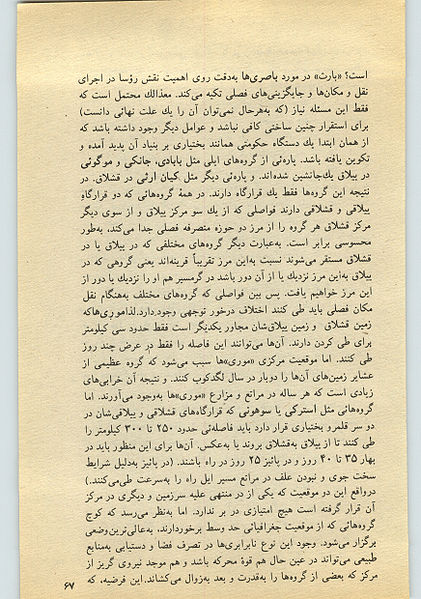 است؟ «بارث» در مورد باصری‌ها به‌دقت روی اهمیت نقش رؤسا در اجرای
نقل و مکان‌ها و جایگزینی‌های فصلی تکیه می‌کند. معذالك محتمل است که
فقط این مسئله نیاز (که به‌هرحال نمی‌توان آن را یك علت نهائی دانست)
برای استقرار چنین ساختی کافی نباشد و عوامل دیگر وجود داشته باشد که
از همان ابتدا یك دستگاه حکومتی همانند بختیاری بر بنیاد آن پدید آمده و
تکوین یافته باشد. پاره‌ئی از گروه‌های ایلی مثل بابادی، جانکی و موگوئی
در ییلاق یك‌جانشین شده‌اند. و پاره‌ئی دیگر مثل کیان ارثی در قشلاق. در
نتیجه این گروه‌ها فقط یك قرارگاه دارند. در همهٔ گروه‌هائی که دو قرارگاهِ
ییلاقی و قشلاقی دارند فواصلی که از یك سو مرکز ییلاق و از سوی دیگر
مرکز قشلاق هر گروه را از مرز دو حوزه متصرفه فصلی جدا می‌کند، به‌طور
محسوسی برابر است. به‌عبارت دیگر گروه‌های مختلفی که در ییلاق یا در
قشلاق مستقر می‌شوند نسبت به‌این مرز تقریباً قرینه‌اند یعنی گروهی که در
ییلاق به‌این مرز نزدیك یا از آن دور باشد در گرمسیر هم او را نزدیك یا دور از
این مرز خواهیم یافت. پس بین فواصلی که گروه‌های مختلف به‌هنگام نقل
مکان فصلی باید طی کنند اختلاف درخور توجهی وجود.دارد.لذاموری‌هاکه
زمین قشلاق و زمین ییلاق‌شان مجاور یکدیگر است فقط حدود سی کیلومتر
برای طی کردن دارند. آن‌ها می‌توانند این فاصله را فقط در عرض چند روز
طی کنند. اما موقعیت مرکزی «موری»ها سبب می‌شود که گروه عظیمی از
عشایر زمین‌های آن‌ها را دوبار در سال لگدکوب کنند. و نتیجه آن خرابی‌های
زیادی است که هر ساله در مراتع و مزارع «موری»ها به‌وجود می‌آورند. اما
گروه‌هائی مثل استرکی یا سوهونی که قرارگاه‌های قشلاقی و ییلاقی‌شان در
دو سر قلمرو بختیاری قرار دارد باید فاصله‌ئی حدود ۲۵۰ تا ۳۰۰ کیلومتر را
طی کنند تا از ییلاق به‌قشلاق بروند یا به‌عکس. آن‌ها برای این منظور باید در
بهار ۳۵ تا ۴۰ روز و در پائیز ۲۵ روز در راه باشند. (در پائیز به‌دلیل شرایط
سخت جوی و نبودن علف در مراتع مسیر ایل راه را به‌سرعت طی‌می‌کنند.)
درواقع این دو موقعیت که یکی از در منتهی علیه سرزمین و دیگری در مرکز
آن قرار گرفته است هیچ امتیازی در بر ندارد. اما به‌نظر می‌رسد که کوچ
گروه‌هائی که از موقعیت جغرافیائی حد وسط برخوردارند، به‌عالی‌ترین‌وضعی
برگزار می‌شود. وجود این نوع نابرابری‌ها در تصرف فضا و دستیابی به‌منابع
طبیعی می‌تواند در عین حال هم قوهٔ محرکه باشد و هم موجد نیروی گریز از
مرکز که بعضی از گروه‌ها را به‌قدرت و بعد به‌زوال می‌کشاند.این فرضیه، که
۶۷